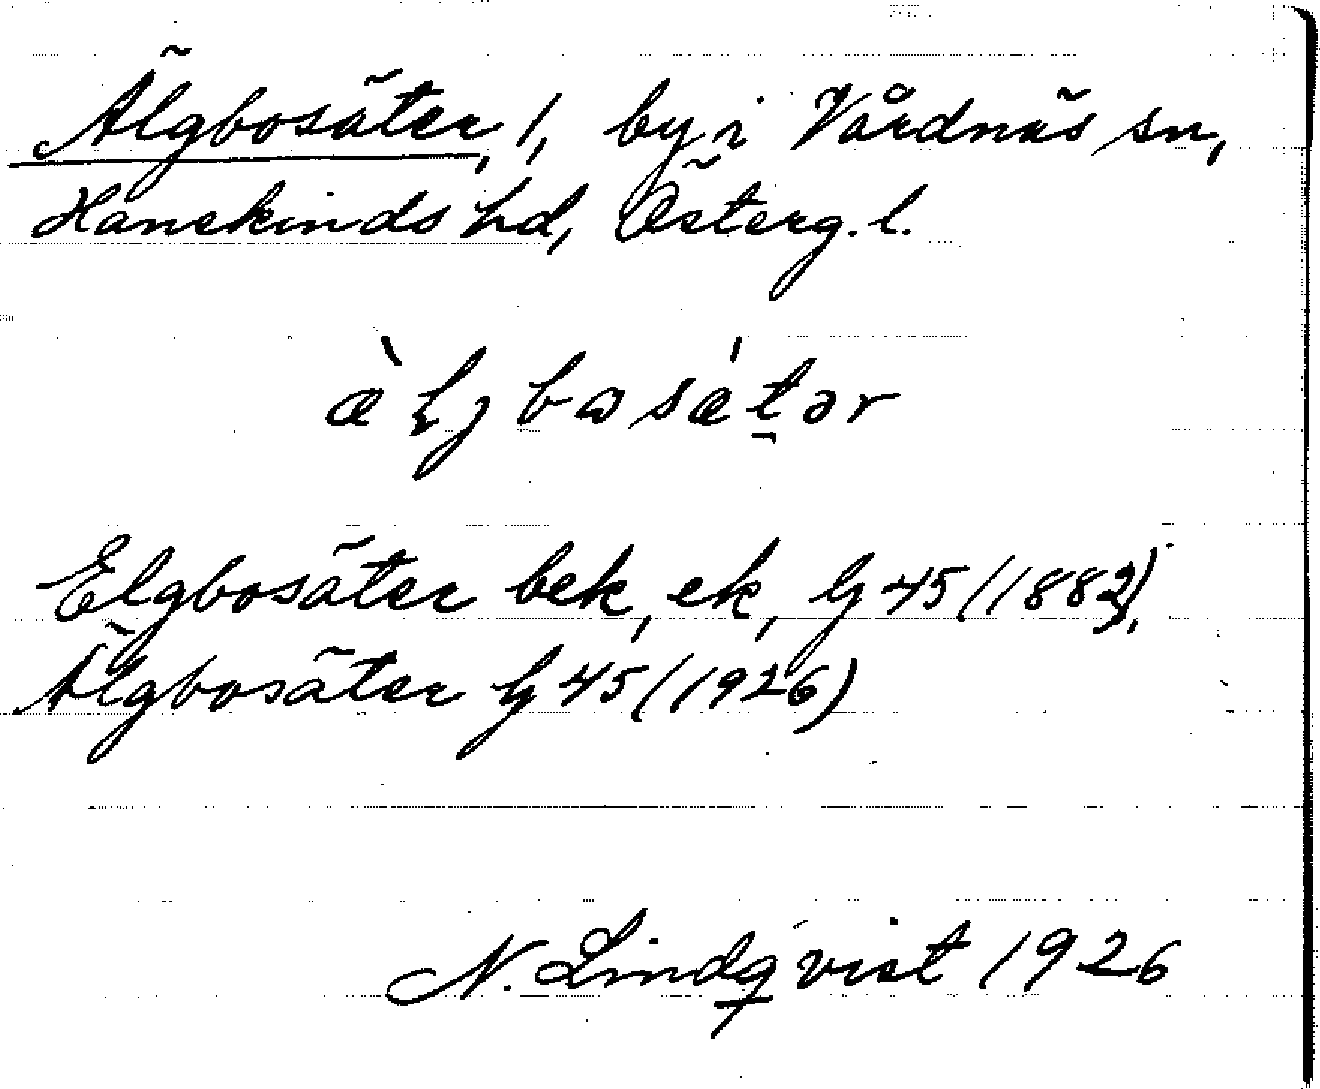 Älgbosäter, 1, by i Vårdnäs sn,
Hanekinds hd, Österg. l.
æ̀ljbɷsæ̀tər
Elgbosäter bek, ek, lj 45 (1882),
Älgbosäter lj 45 (1926)
N. Lindqvist 1926